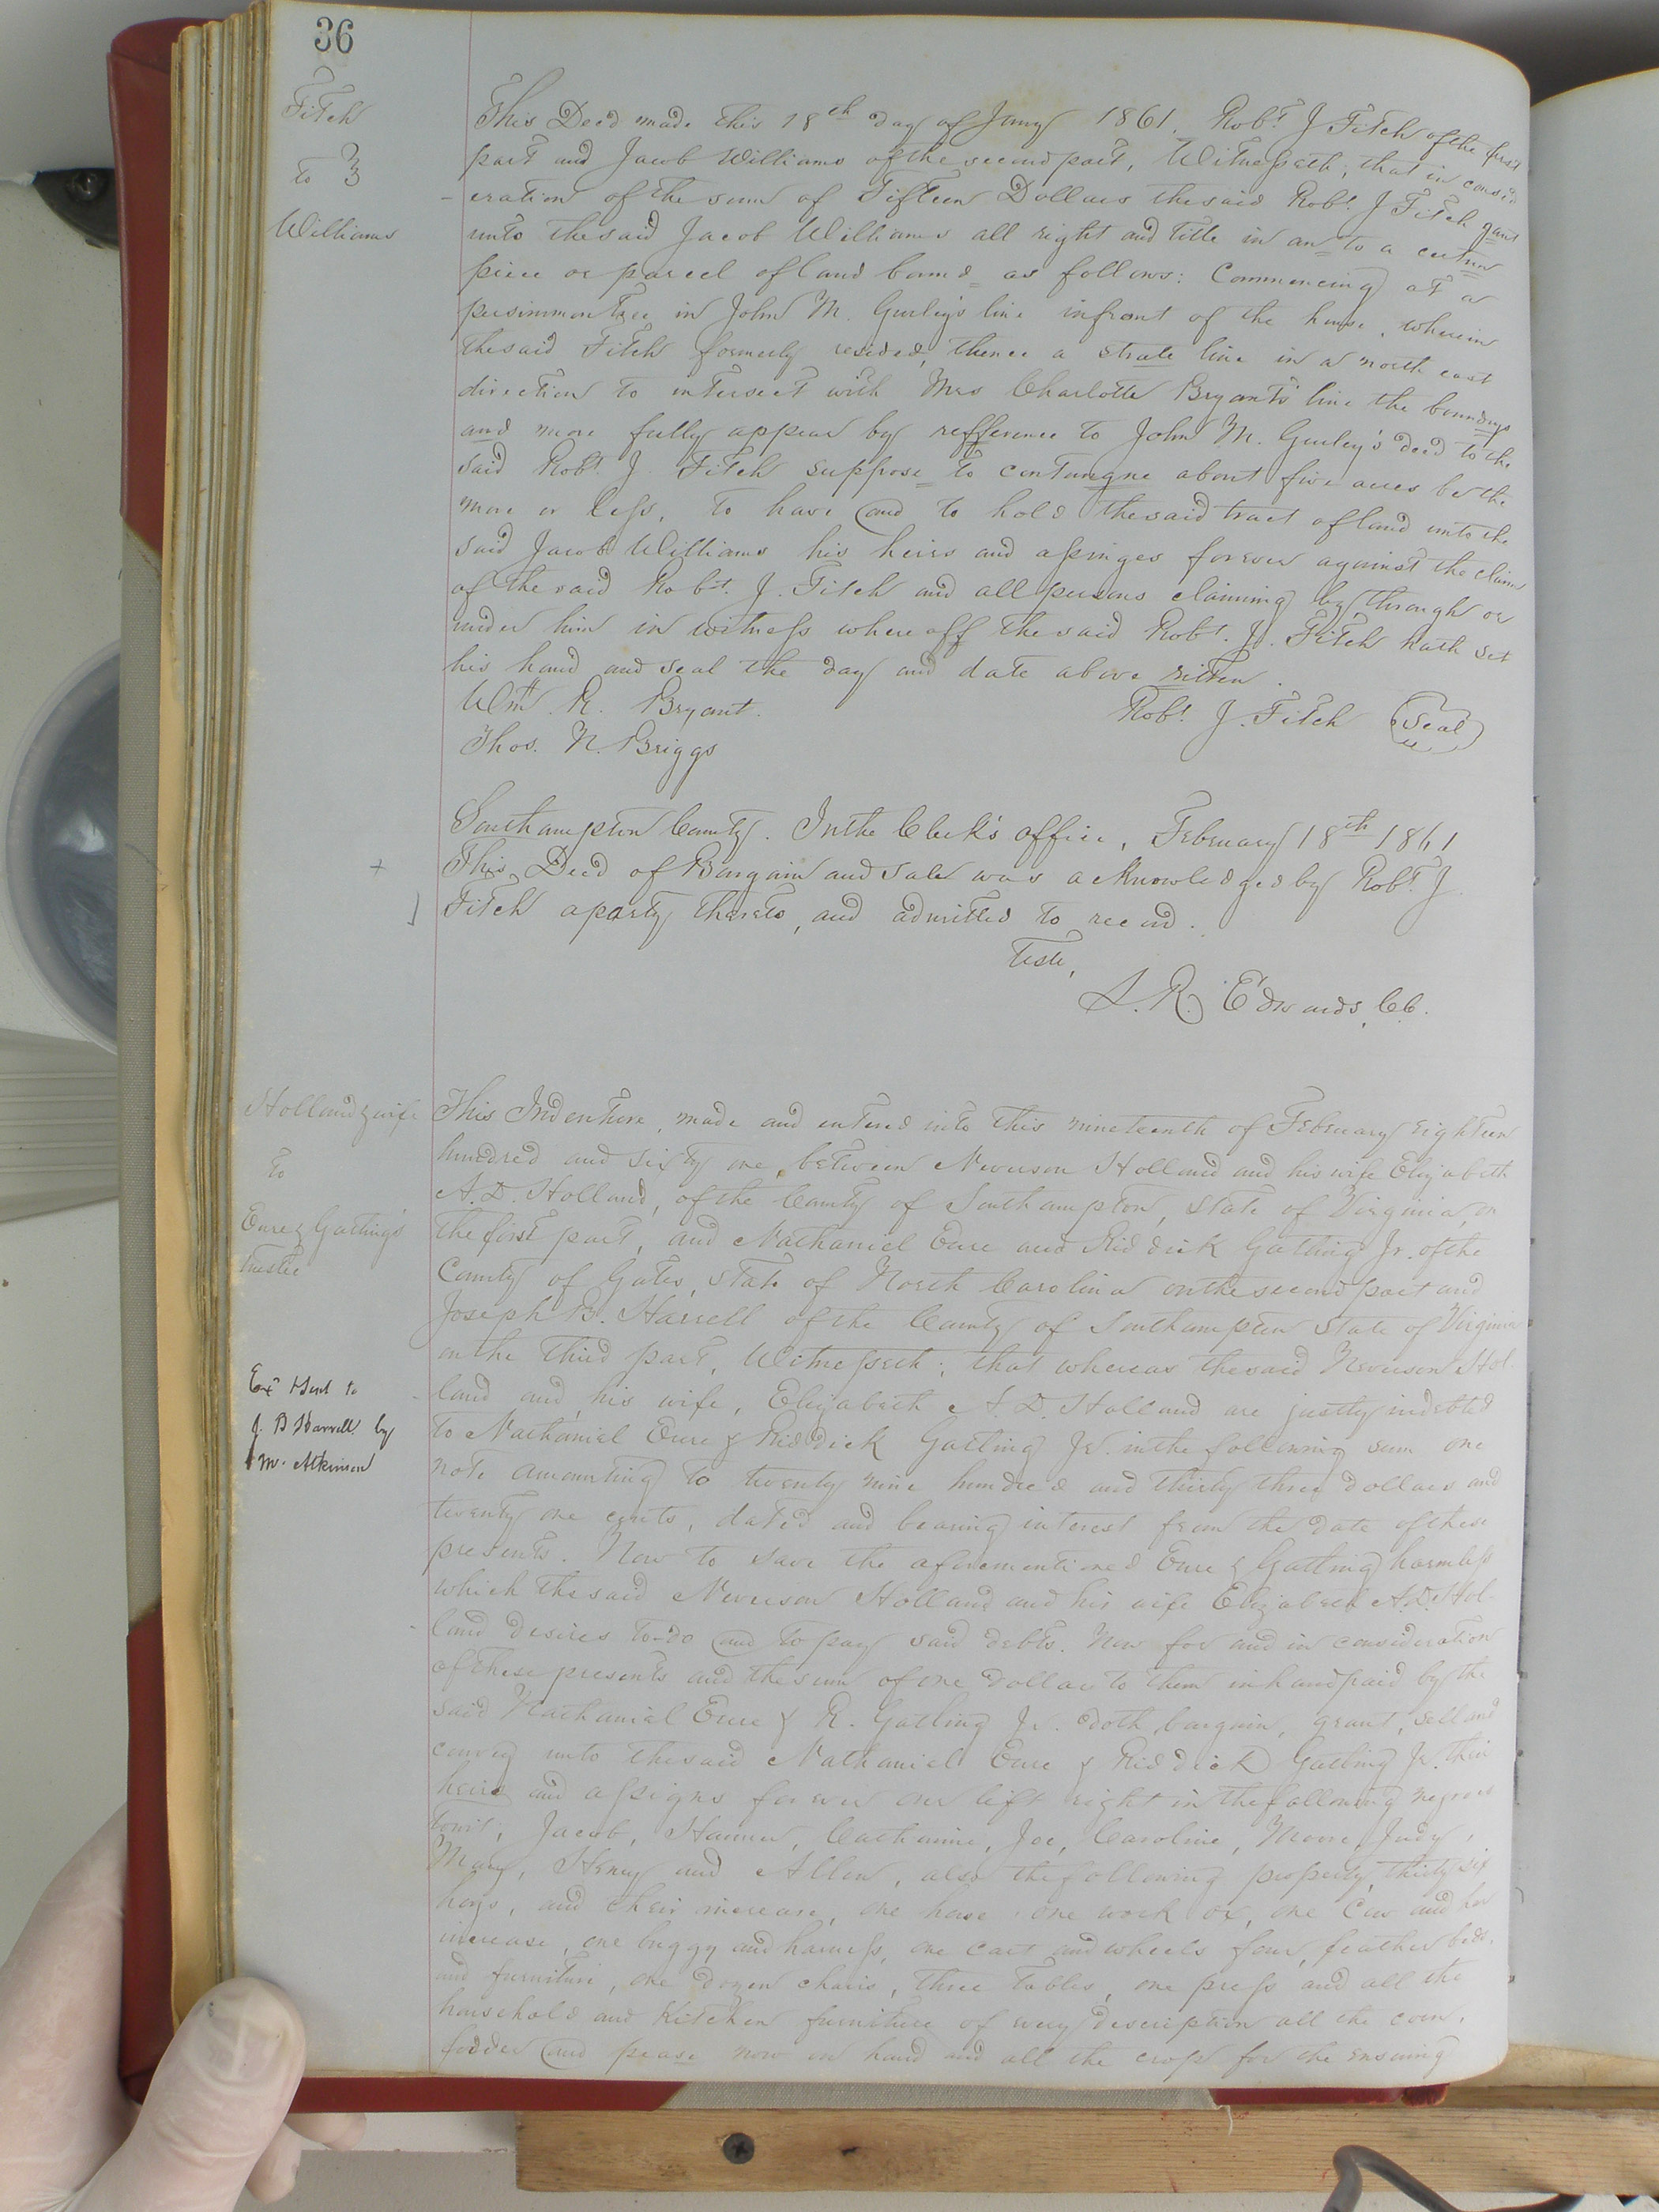 36
Fitch
to
Williams
This Deed made this 18th day of Jany 1861. Robt J Fitch of the first
part and Jacob Williams of the second part, Witnesseth; that in consid
eration of the sum of Fifteen Dollars the said Robt. J Fitch gant
unto the said Jacob Williams all right and title in an to a certun
piece or parcel of land bound as follows: Commencing at a
persimmon tree in John M. Gurley's line infront of the house, wherein
the said Fitch formerly resided, thence a strate line in a north east
direction to intersect with Mrs Charlotte Bryants line the boundrys
and more fully appear by refference to John M. Gurley's deed to the
said Robt. J. Fitch suppose to contungne about five acres be the
more or less, to have and to hold the said tract of land unto the
said Jacob Williams his heirs and assinges forever against the claim
of the said Robt. J. Fitch and all persons claiming by, through or
under him in witness whereoff the said Robt. J. Fitch hath set
his hand and seal the day and date above ritten.
Wm. R. Bryant. Robt. J. Fitch (Seal)
Thos. N. Briggs
Southampton County. In the Clerk's office, February 18th 1861
This Deed of Bargain and sale was acknowledged by Robt. J.
Fitch a party thereto, and admitted to record.
Teste,
L. R. Edwards, C.C.
Holland & wife
to
Eure & Gatling's
Trustee
Exd & Sent to
J. B Harrell by
M. Atkinson
This Indenture, made and entered into this nineteenth of February eighteen
hundred and sixty one between Neverson Holland and his wife Elizabeth
A. D. Holland, of the County of Southampton, State of Virginia, on
the first part, and Nathaniel Eure and Riddick Gatling Jr. of the
County of Gates, State of North Carolina on the second part and
Joseph B. Harrell of the County of Southampton State of Virginia
on the third part, Witnesseth; that whereas the said Neverson Hol-
land and his wife, Elizabeth A. D. Holland are justly indebted
to Nathaniel Eure & Riddick Gatling Jr. in the following sum one
note amounting to twenty nine hundred and thirty three dollars and
twenty one cents, dated and bearing interest from the date of these
presents. Now to save the aforementioned Eure & Gatling harmless
which the said Neverson Holland and his wife Elizabeth A.D. Hol-
land desires to-do and to pay said debts. Now for and in consideration
of these presents and the sum of one dollar to them in hand paid by the
said Nathanial Eure & R. Gatling Jr. doth bargain, grant, sell and
convey unto the said Nathaniel Eure & Riddick Gatling Jr. their
heirs and assigns forever our life right in the following negroes
towit; Jacob, Hanner, Catharine, Joe, Caroline, Moore, Judy,
Mary, Henry and Allen, also the following property, thirty six
hogs, and their increase, one horse one work ox, one Cow and her
increase, one buggy and harness, one cart and wheels four, feather beds,
and furniture, one dozen chairs, three tables, one press and all the
household and kitchen furniture of every description all the corn,
fodder and pease now on hand and all the crop for the ensuing